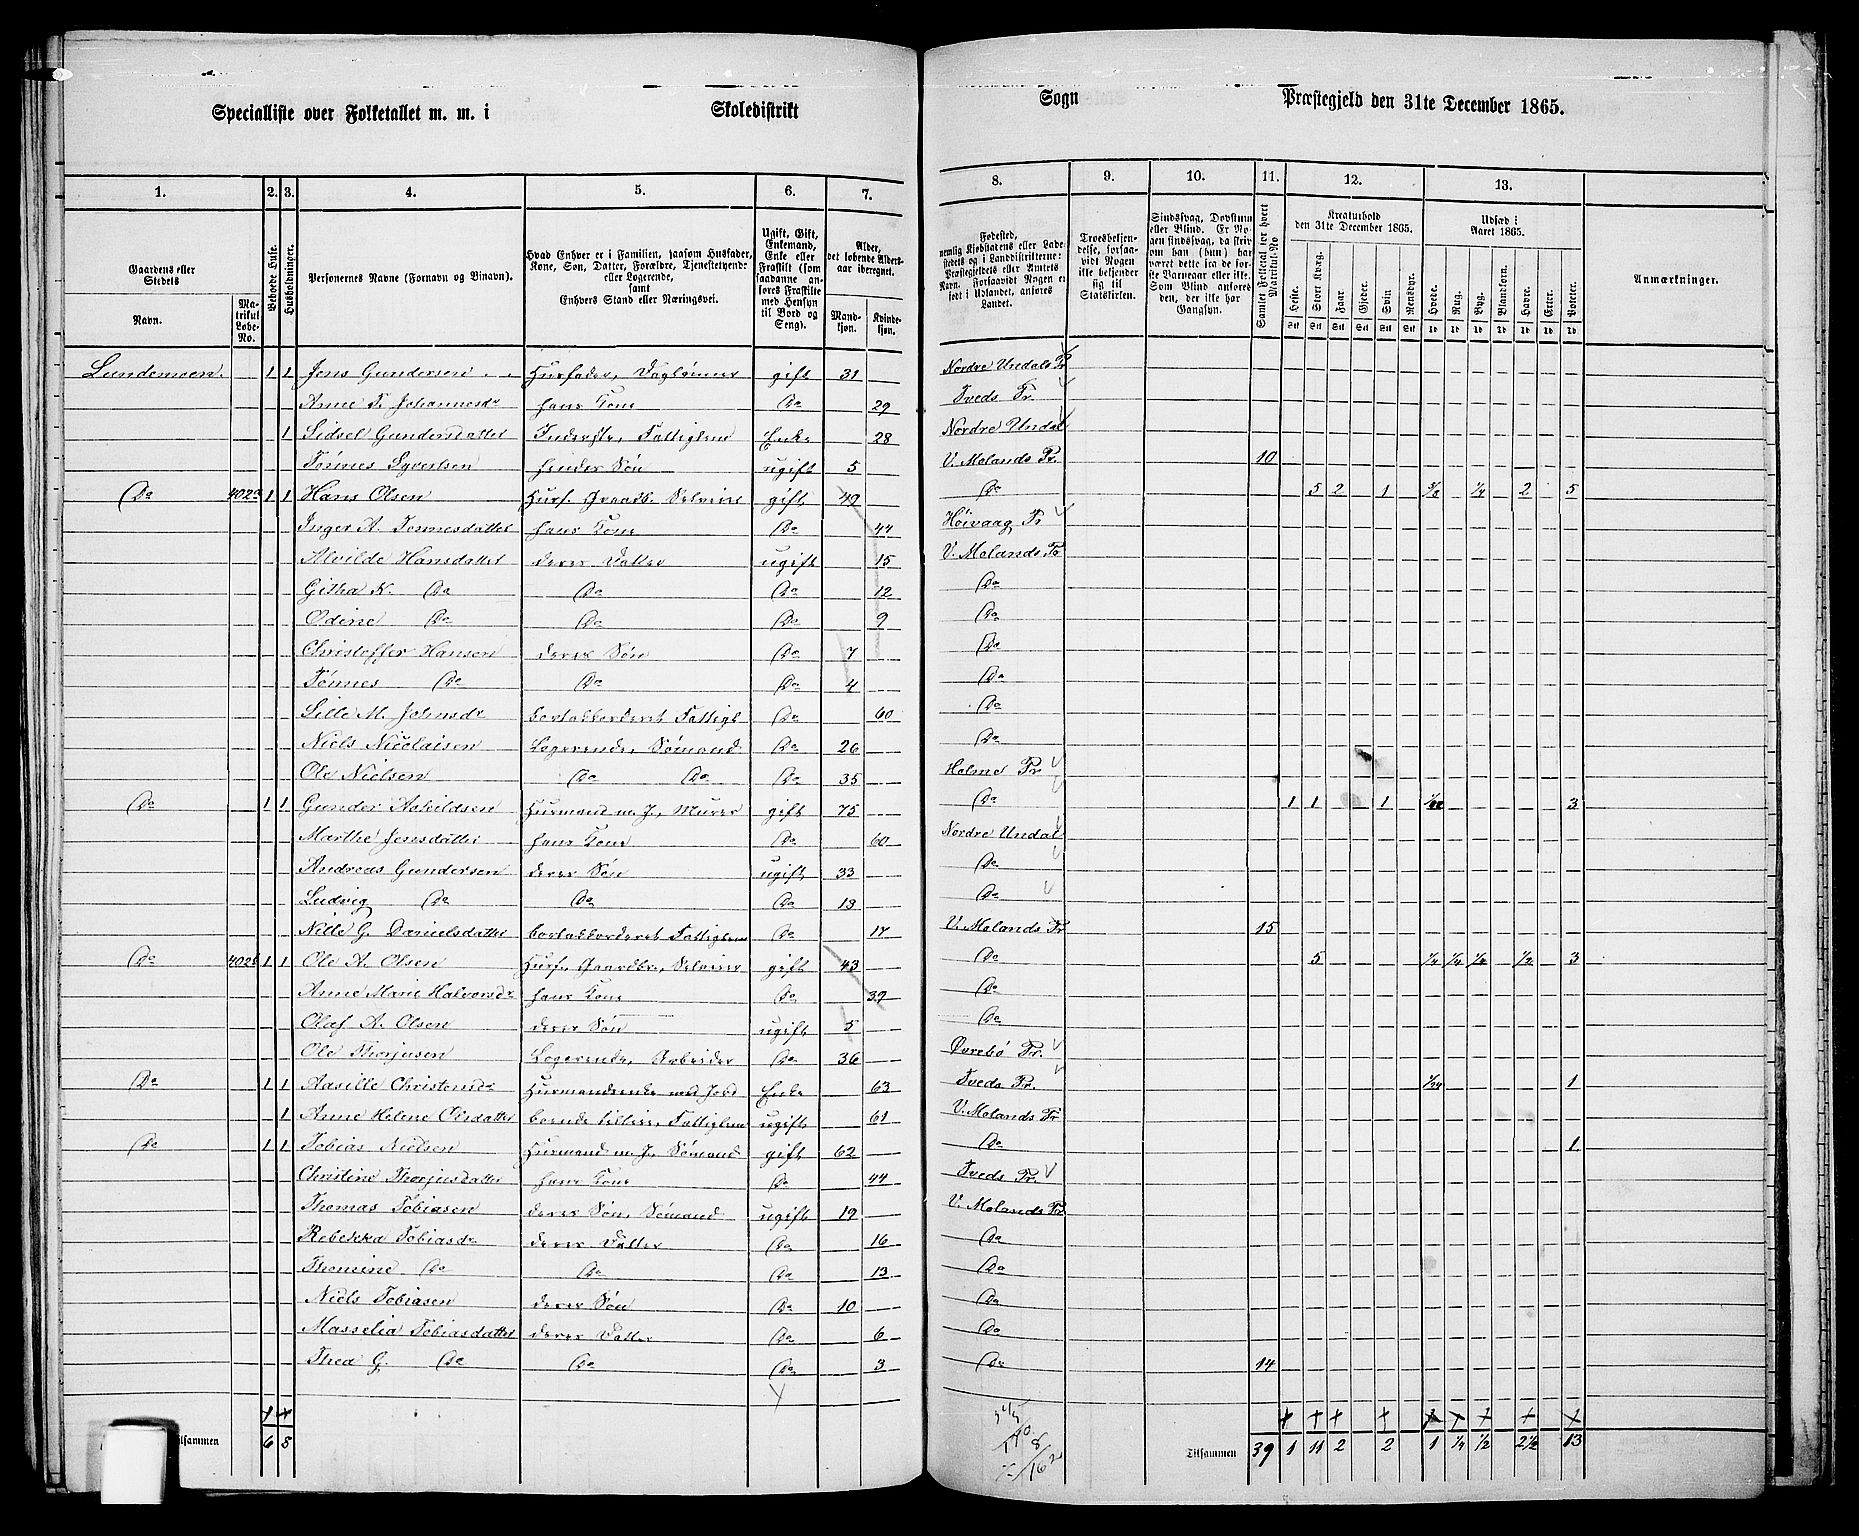 Specialliste over Folketallet m. m. i Skoledistrikt Sogn Præstegjeld den 31te December 1865.
1. 2. 3. 4. 5. 6. 7. 8. 9. 10. 11. 12. 13.
Gaardens eller Stedets Navn. Matrikul Løbe-No. Beboede Huse. Husholdninger. Personernes Navne (Fornavn og Binavn). Hvad Enhver er i Familien, saasom Husfader, Kone, Søn, Datter, Forældre, Tjenestetyende eller Logerende, samt Enhvers Stand eller Næringsvei. Ugift, Gift, Enkemand, Enke eller Fraskilt (som saadanne anføres Fraskilte med Hensyn til Bord og Seng). Alder, det løbende Alders-aar iberegnet. Mandkjøn. Kvindekjøn. Fødested, nemlig Kjøbstadens eller Ladestedets og i Landdistrikterne: Præstegjeldets eller Amtets Navn. Forsaavidt Nogen er født i Udlandet, anføres Landet. Troesbekjendelse, forsaavidt Nogen ikke bekjender sig til Statskirken. Sindssvag, Døvstum eller Blind. Er Nogen sindssvag, da skrives om han (hun) har været dette fra de første Barneaar eller ikke. Som Blind anføres den, der ikke har Gangsyn. Samlet Folketal for hvert Matrikul-No Kreaturhold den 31te December 1865. Heste. Stort Kvæg. Faar. Gjeder. Svin Rensdyr. Udsæd i Aaret 1865. Hvede. Rug. Byg. Blandkorn. Havre. Erter. Poteter. Anmærkninger.
Lundemoen. 1 1 Jens Gundersen Husfader, Dagleiner gift 31 Nordre Undals Pr
Anne T. Johannesdr hans Kone Do 29 Tveds Pr.
1 Sidsel Gundersdatter Inderste, Fattiglem Enke 28 Nordre Undal
Tønnes Syvertsen hendes Søn ugift 5 V. Molands Pr. 10
Do 402a 1 1 Hans Olsen Husf. Gaardb. Selveier gift 49 Do 5 2 1 3/8 1/4 2 5
Inger A. Tønnesdatter hans Kone Do 44 Høivaag Pr
Alvilde Hansdatter deres Datter ugift 15 V. Molands Pr
Githa K. Do Do Do 12 Do
Odine Do Do Do 9 Do
Christoffer Hansen deres Søn Do 7 Do
Tønnes Do Do Do 4 Do
Sille M. Johnsdr bortakkorderet Fattigl Do 60 Do
Niels Nicolaisen Logerende, Sømand Do 26 Do
Ole Nielsen Do Do Do 35 Holme Pr
Do 1 1 Gunder Askildsen Husmand m. J., Murer gift 75 Do 1 1 1 3
Marthe Jensdatter hans Kone Do 60 Nordre Undal
Andreas Gundersen deres Søn ugift 33 Do
Ludvig Do Do Do 13 Do
Nille G. Danielsdatter bortakkorderet Fattiglem Do 17 V. Molands Pr 15
Do 402b 1 1 Ole A. Olsen Husf., Gaardbr., Selveier gift 43 Do 5 1/4 1/4 1/4 1/2 3
Anne Marie Halvorsdr hans Kone Do 39 Do
Olaf A. Olsen deres Søn ugift 5 Do
Ole Thorjusen Logerende, Arbeider Do 36 Øvrebø Pr.
Do 1 1 Aasille Christensdr Husmandsenke med Jord Enke 63 Tveds Pr. 1/24 1
1 Anne Helene Olsdatter boende tilleie, Fattiglem ugift 61 V. Molands Pr
Do 1 1 Tobias Nielsen Husmand m. J., Sømand gift 62 Do 1
Christine Thorjusdatter hans Kone Do 44 Tveds Pr.
Thomas Tobiasen deres Søn, Sømand ugift 19 V. Molands Pr
Rebekka Tobiasdr deres Datter Do 16 Do
Thomine Do Do Do 13 Do
Niels Tobiasen deres Søn Do 10 Do
Masselia Tobiasdatter deres Datter Do 6 Do
Thea G. Do Do Do 3 Do 14
Tilsammen 6 8 Tilsammen 39 1 11 2 2 1 1/4 1/2 2 1/2 13